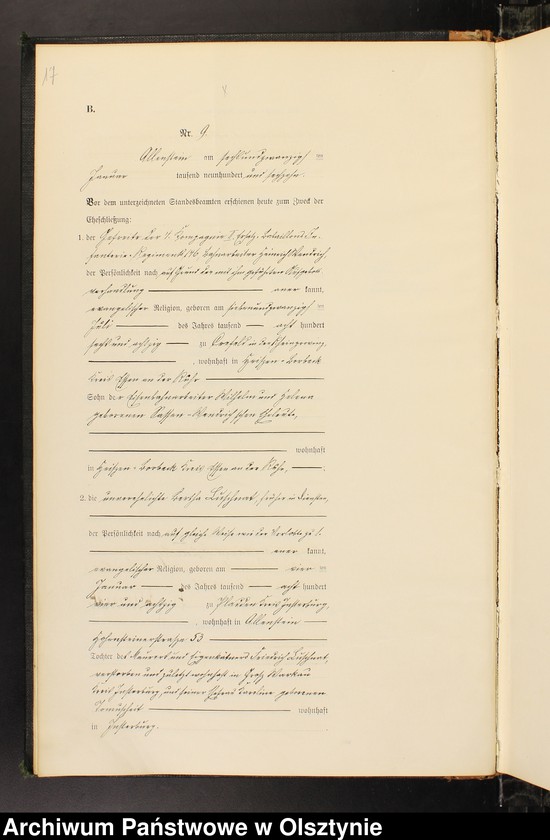 17
B.
Nr. 9.
Allenstein am sechsundzwanzigsten
Januar tausend neunhundert und sechzehn.
Vor dem unterzeichneten Standesbeamten erschienen heute zum Zweck der
Eheschließung:
1. der Gefreite der 4. Kompagnie II. Ersatz-Bataillons In-
fanterie-Regiments 146, Heinrich
der Persönlichkeit nach auf Grund der mit ihm geführten
verhandlung aner kannt,
evangelischer Religion, geboren am siebenundzwanzigsten
Juli des Jahres tausend acht hundert
sechs und achtzig zu Krefeld in der Rheinprovinz,
, wohnhaft in Borbeck
Kreis Essen an der Ruhr
Sohn der Eisenbahnarbeiter Wilhelm und Helena
geborenen Eheleute,
wohnhaft
in Borbeck Kreis Essen an der Ruhr,
2. die unverehelichte Bertha früher in Diensten,
der Persönlichkeit nach auf gleiche Weise wie der Verlobte zu 1.
aner kannt,
evangelischer Religion, geboren am vier ten
Januar des Jahres tausend acht hundert
vier und achtzig zu Kreis Insterburg,
, wohnhaft in Allenstein
Hohensteinerstraße 53
Tochter des Maurers und Eigenkätners Friedrich
verstorben und zuletzt wohnhaft in Groß Warkau
Kreis Insterburg, und seiner Ehefrau Karoline geborenen
wohnhaft
in Insterburg.
Archiwum Państwowe w Olsztynie